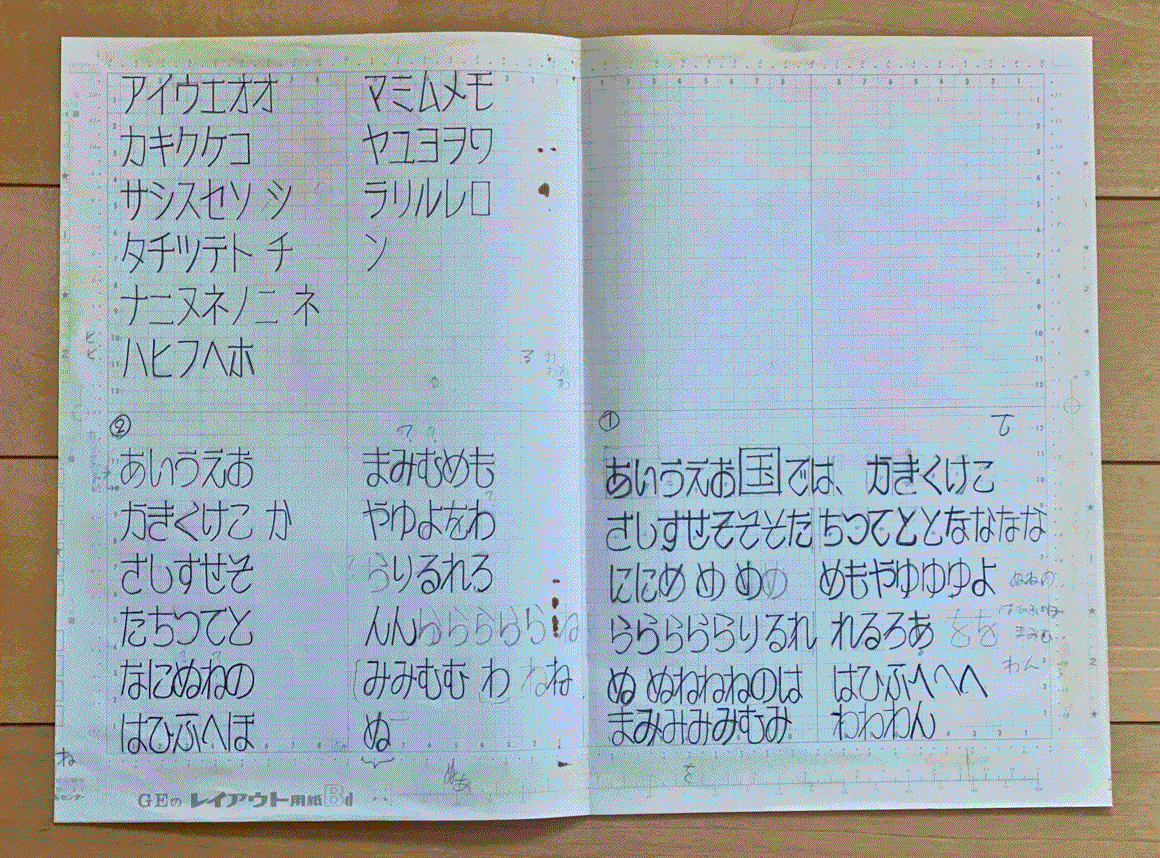 アイウエオオ
カキクケコ
サシスセソ シ
タチツテト チ
ナニヌネノニ ネ
ハヒフヘホ
マミムメモ
ヤユヨヲワ
ラリルレロ
ン
②
あいうえお
かきくけこ か
さしすせそ
たちつてと
なにぬねの
はひふへほ
まみむめも
やゆよをわ
らりるれろ
んんららららら ね
みみむむ わ ねね
ぬ
ね
ぬあ
GEの レイアウト用紙 Bd
①
て
あいうえお国では、かきくけこ
さしすせそそそた ちつてととなななな
ににめ め めの めもやゆゆゆよ
ぬねの
らららららりるれ れるろあ をを
はひふへほ
まみむ
わん
ぬ ぬねねねのは はひふへへへ
まみみみみむみ わわわん
を